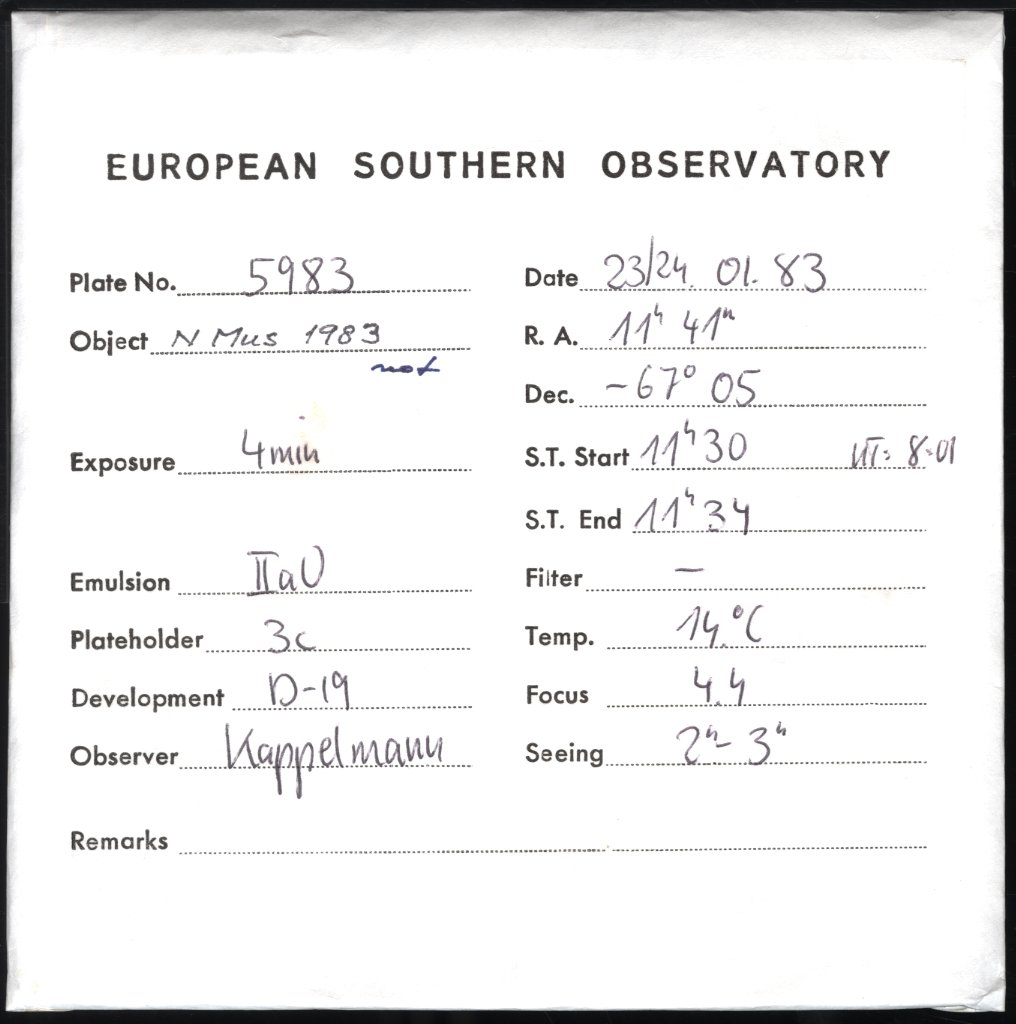 EUROPEAN SOUTHERN OBSERVATORY
Plate No. 5983
Date 23/24. 01. 83
Object N Mus 1983
R. A. 11ʰ 41ᵐ
not
Dec. -67° 05
Exposure 4min
S.T. Start 11ʰ30 UT: 8:01
S.T. End 11ʰ34
Emulsion IIaO
Filter —
Plateholder 3c
Temp. 14.°C
Development D-19
Focus 4.4
Observer Kappelmann
Seeing 2"- 3"
Remarks